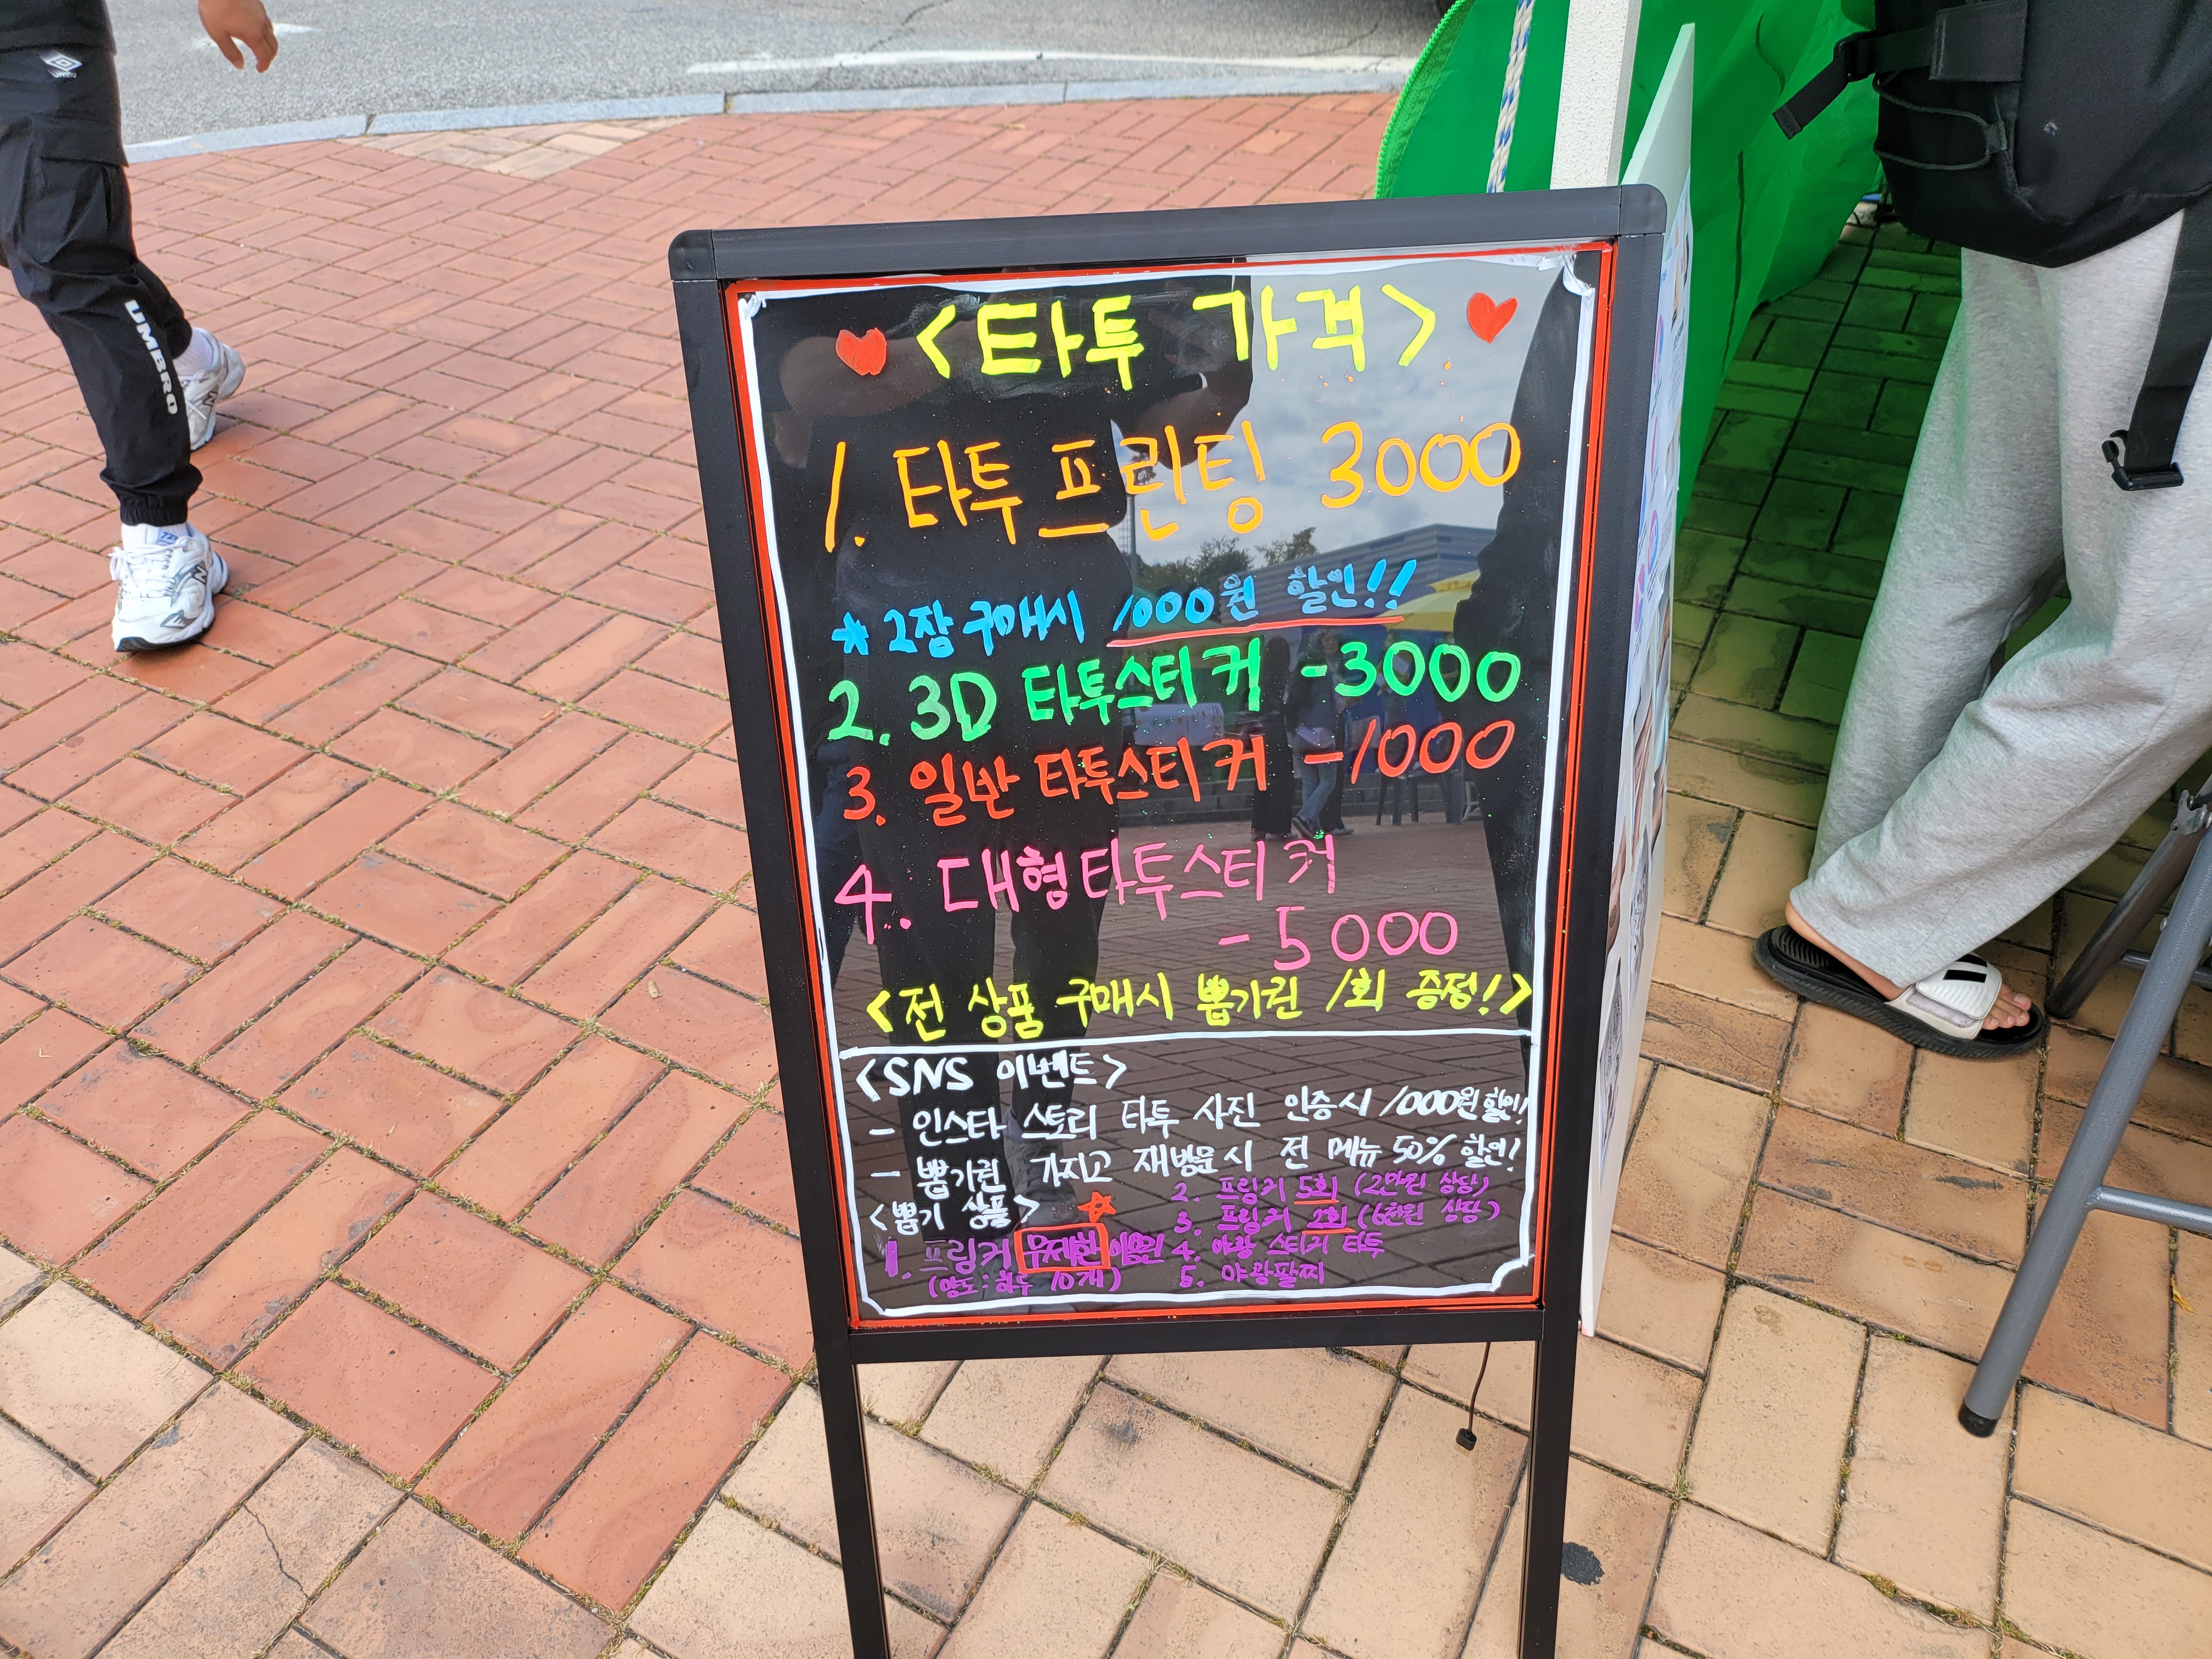 <타투 가격>
1. 타투프린팅 3000
* 2장 구매시 1000원 할인!!
2. 3D 타투스티커 -3000
3. 일반 타투스티커 -1000
4. 대형타투스티커
-5000
<전 상품 구매시 뽑기권 1회 증정!>
<SNS 이벤트>
- 인스타 스토리 타투 사진 인증시 1000원 할인!
- 뽑기권 가지고 재방문시 전 메뉴 50% 할인!
<뽑기 상품>
1. 프링커 무제한 이용권
(양도:하루 10개)
2. 프링커 5회 (2만원 상당)
3. 프링커 2회 (6천원 상당)
4. 야광 스티커 타투
5. 야광팔찌
UMBRO